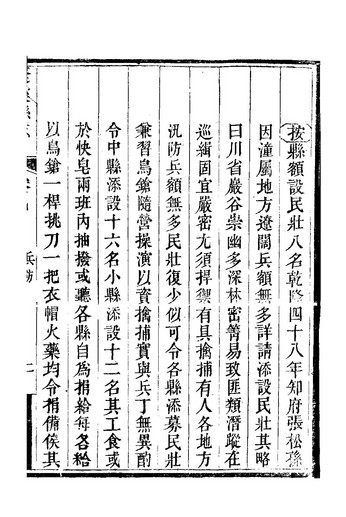 按縣額設民壯八名乾隆四十八年知府張松孫
因潼屬地方遼闊兵額無多詳請添設民壯其略
曰川省巖谷崇幽多深林密箐易致匪類潛蹤在
巡緝固宜嚴密尤須捍禦有具擒捕有人各地方
汛防兵額無多民壯復少似可令各縣添募民壯
兼習鳥鎗隨營操演以資擒捕實與兵丁無異酌
令中縣添設十六名小縣添設十二名其工食或
於快皂兩班內抽撥或聽各縣自為捐給每名給
以鳥鎗一桿挑刀一把衣帽火藥均令捐備俟其
兵防